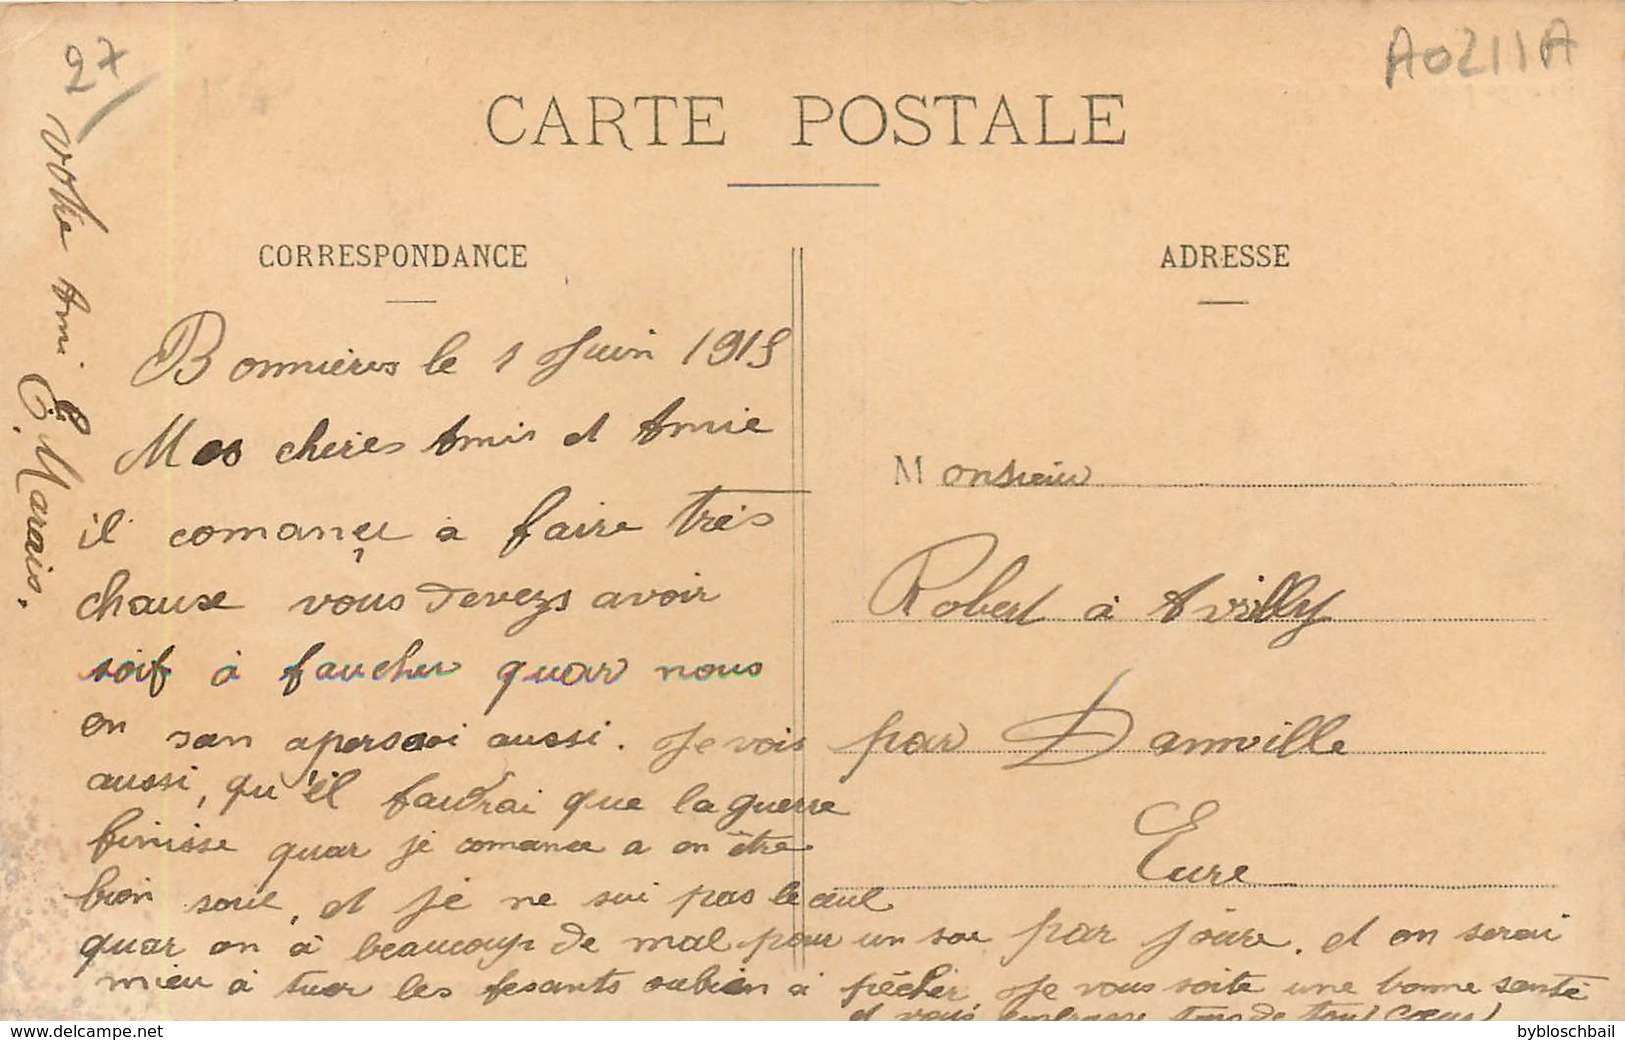 27
A0211A
CARTE POSTALE
CORRESPONDANCE
ADRESSE
Bonnières le 1 Juin 1915
Mes chères Amis et Amie
il comançe à faire très
chause vous devezs avoir
soif à faucher quar nous
on san apersoi aussi. Je vois
aussi, qu'il faudrai que la guerre
finisse quar je comance a en être
bien soul, et je ne sui pas le cul
quar on à beaucoup de mal pour un sou par joure. et on serai
mieu à tuer les fesants oubien à pêcher. Je vous soite une bonne senté
et vous embrasse tous de tout cœur
votre Ami E. Marais.
Monsieur
Robert à Avrilly
par Damville
Eure
bybloschbail